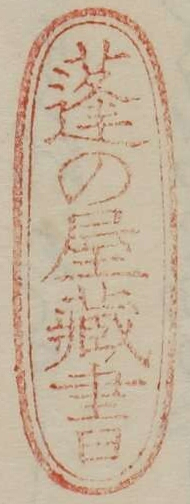 蓬の屋蔵書